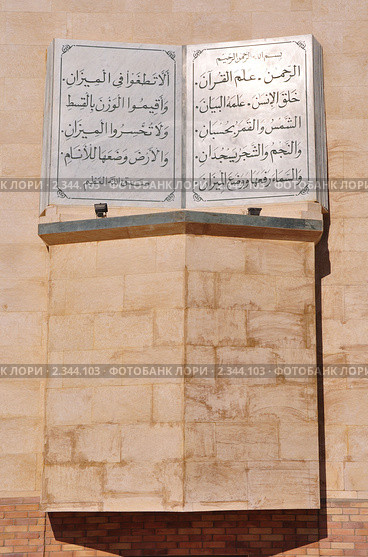 بسم الله الرحمن الرحيم
الرحمن . علم القرآن .
خلق الإنسن . علمه البيان .
الشمس والقمر بحسبان .
والنجم والشجر يسجدان .
والسماء رفعها ووضع الميزان .
ألا تطغوا في الميزان .
وأقيموا الوزن بالقسط
ولا تخسروا الميزان .
والأرض وضعها للأنام .
صدق الله العظيم
НК ЛОРИ · 2.344.103 · ФОТОБАНК ЛОРИ · 2.344.103 · ФОТОБАНК ЛОРИ
К ЛОРИ · 2.344.103 · ФОТОБАНК ЛОРИ · 2.344.103 · ФОТОБАНК ЛОРИ